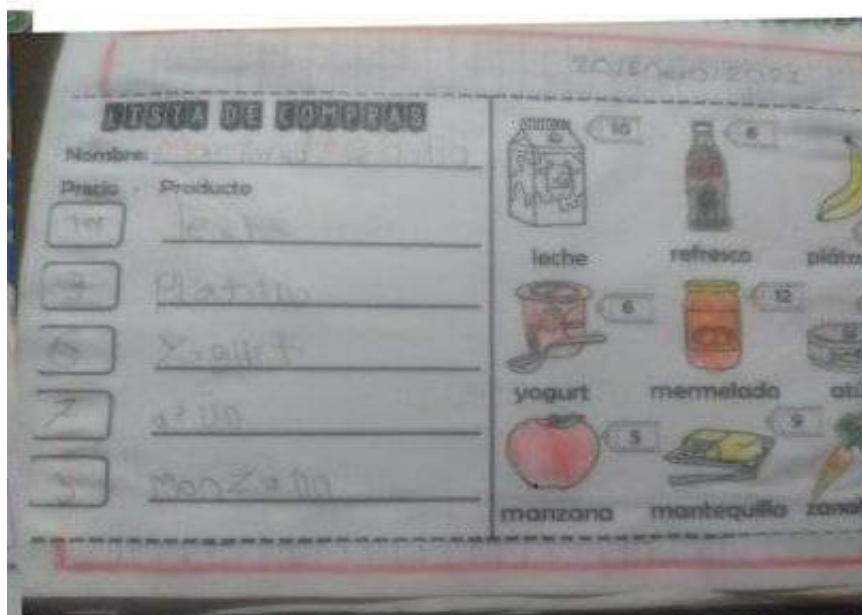 20/Enero/2021
LISTA DE COMPRAS
Nombre:
Precio - Producto
leche
3 Platano
6 Yogurt
7 atún
manzana
10
6
leche
refresco
6
12
yogurt
mermelada
5
9
manzana
mantequilla